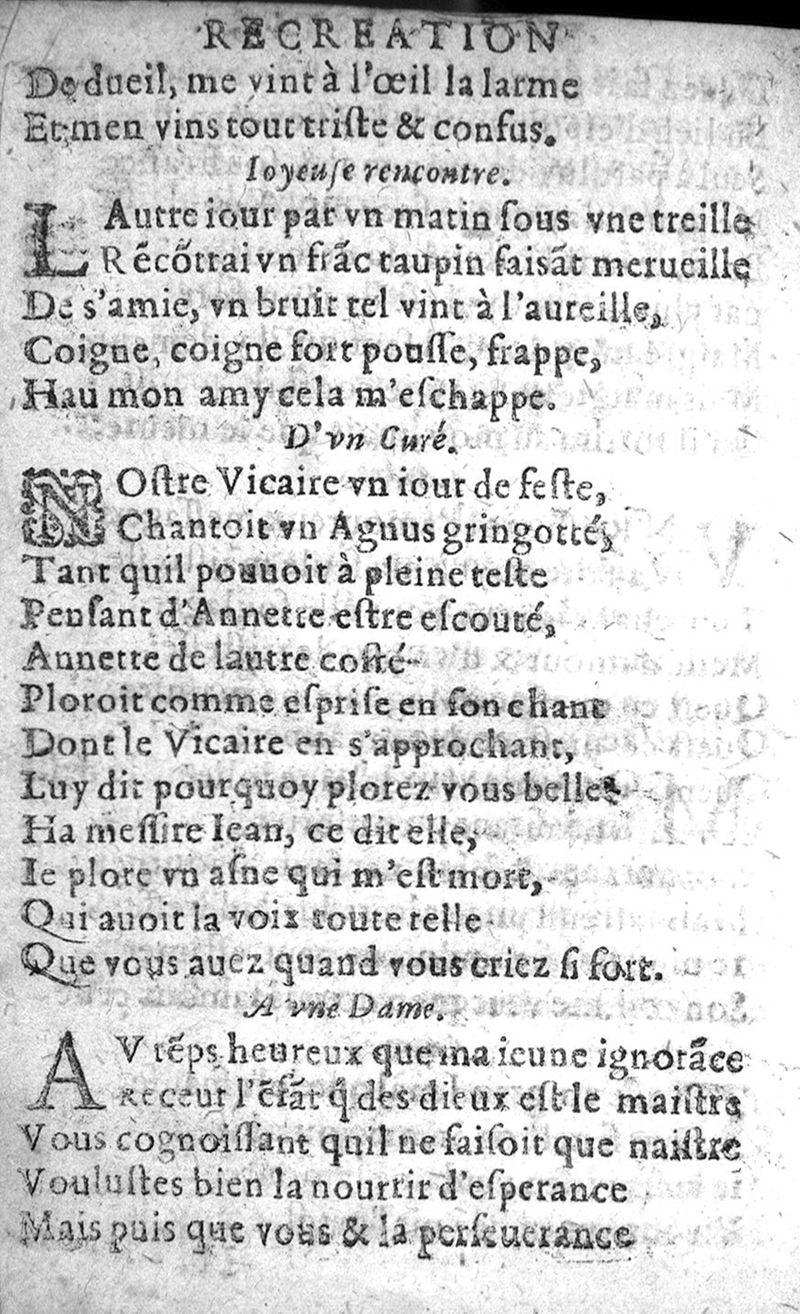 RECREATION
De dueil, me vint à l'œil la larme
Et men vins tout triſte & confus.
Ioyeuſe rencontre.
L Autre iour par vn matin ſous vne treille
Rẽcõtrai vn frãc taupin faisãt merueille
De s'amie, vn bruit tel vint à l'aureille,
Coigne, coigne fort pouſſe, frappe,
Hau mon amy cela m'eſchappe.
D'vn Curé.
NOſtre Vicaire vn iour de feſte,
Chantoit vn Agnus gringotté,
Tant quil pouuoit à pleine teſte
Penſant d'Annette eſtre eſcouté,
Annette de lautre coſté
Ploroit comme eſpriſe en ſon chant
Dont le Vicaire en s'approchant,
Luy dit pourquoy plorez vous belle?
Ha meſſire Iean, ce dit elle,
Ie plore vn aſne qui m'eſt mort,
Qui auoit la voix toute telle
Que vous auez quand vous criez ſi fort.
A vne Dame.
AV tẽps heureux que ma ieune ignorãce
Receut l'ẽfãt q̃ des dieux eſt le maiſtre
Vous cognoiſſant quil ne faiſoit que naiſtre
Vouluſtes bien la nourrir d'eſperance
Mais puis que vous & la perſeuerance